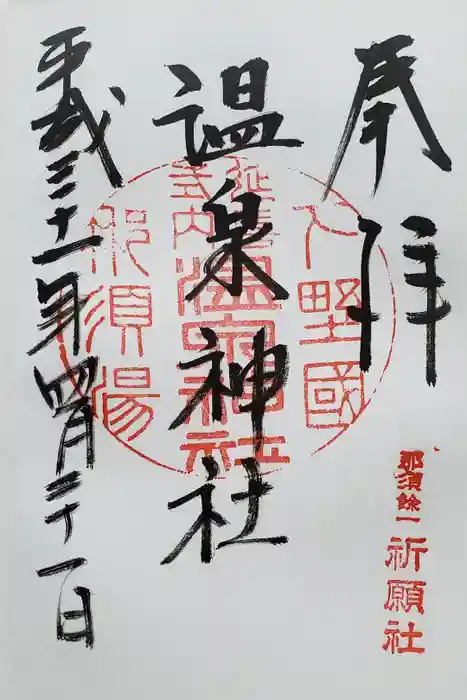 奉拝
下野國
延喜
式内
温泉神社
那須湯
平成三十一年四月二十一日
那須餘一
祈願社